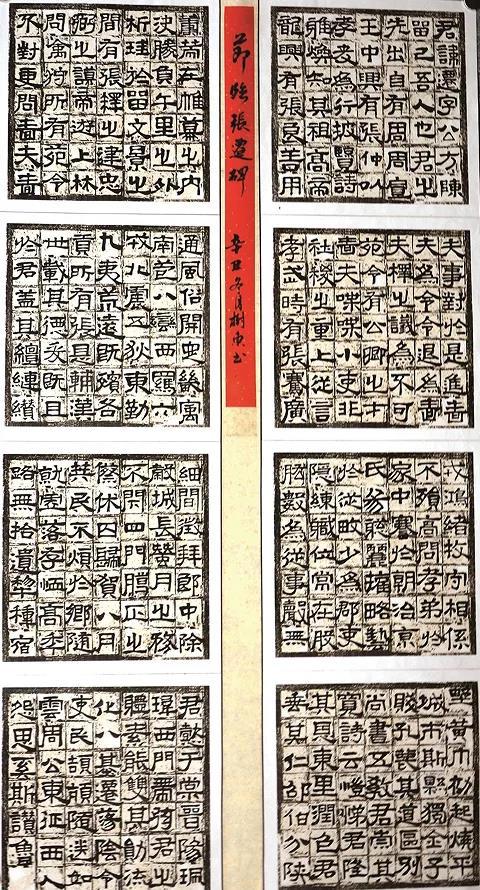 君諱遷字公方陳
留己吾人也君之
先出自有周周宣
王中興有張仲以
孝友為行披覽詩
雅煥知其祖高帝
龍興有張良善用
節臨張遷碑
辛丑冬月樹東書
籌策在帷幕之內
決勝負千里之外
析珪於留文景之
間有張釋之建忠
弼之謨帝遊上林
問禽狩所有苑令
不對更問嗇夫嗇
夫事對於是進嗇
夫為令令退為嗇
夫釋之議為不可
苑令有公卿之才
嗇夫喋喋小吏非
社稷之重上從言
孝武時有張騫廣
通風俗開定畿寓
南苞八蠻西羈六
戎北震五狄東勤
九夷荒遠既殯各
貢所有張是輔漢
世載其德爰既且
於君蓋其繵縺纘
戎鴻緒牧守相係
不殞高問孝弟於
家中謇於朝治京
氏易聰麗權略藝
於從畋少為郡吏
隱練職位常在股
肱數為從事聲無
細聞徵拜郎中除
穀城長蠶月之務
不閉四門臘正之
際休囚歸賀八月
筭民不煩於鄉隨
就虛落存恤高年
路無拾遺犁種宿
野黃巾初起燒平
城市斯縣獨全子
賤孔蔑其道區別
尚書五教君崇其
寬詩云愷悌君隆
其恩東里潤色君
垂其仁邵伯分陝
君懿于棠晉陽珮
瑋西門帶弦君之
體素能雙其勛流
化八基遷蕩陰令
吏民頡頏隨送如
雲周公東征西人
怨思奚斯讚魯